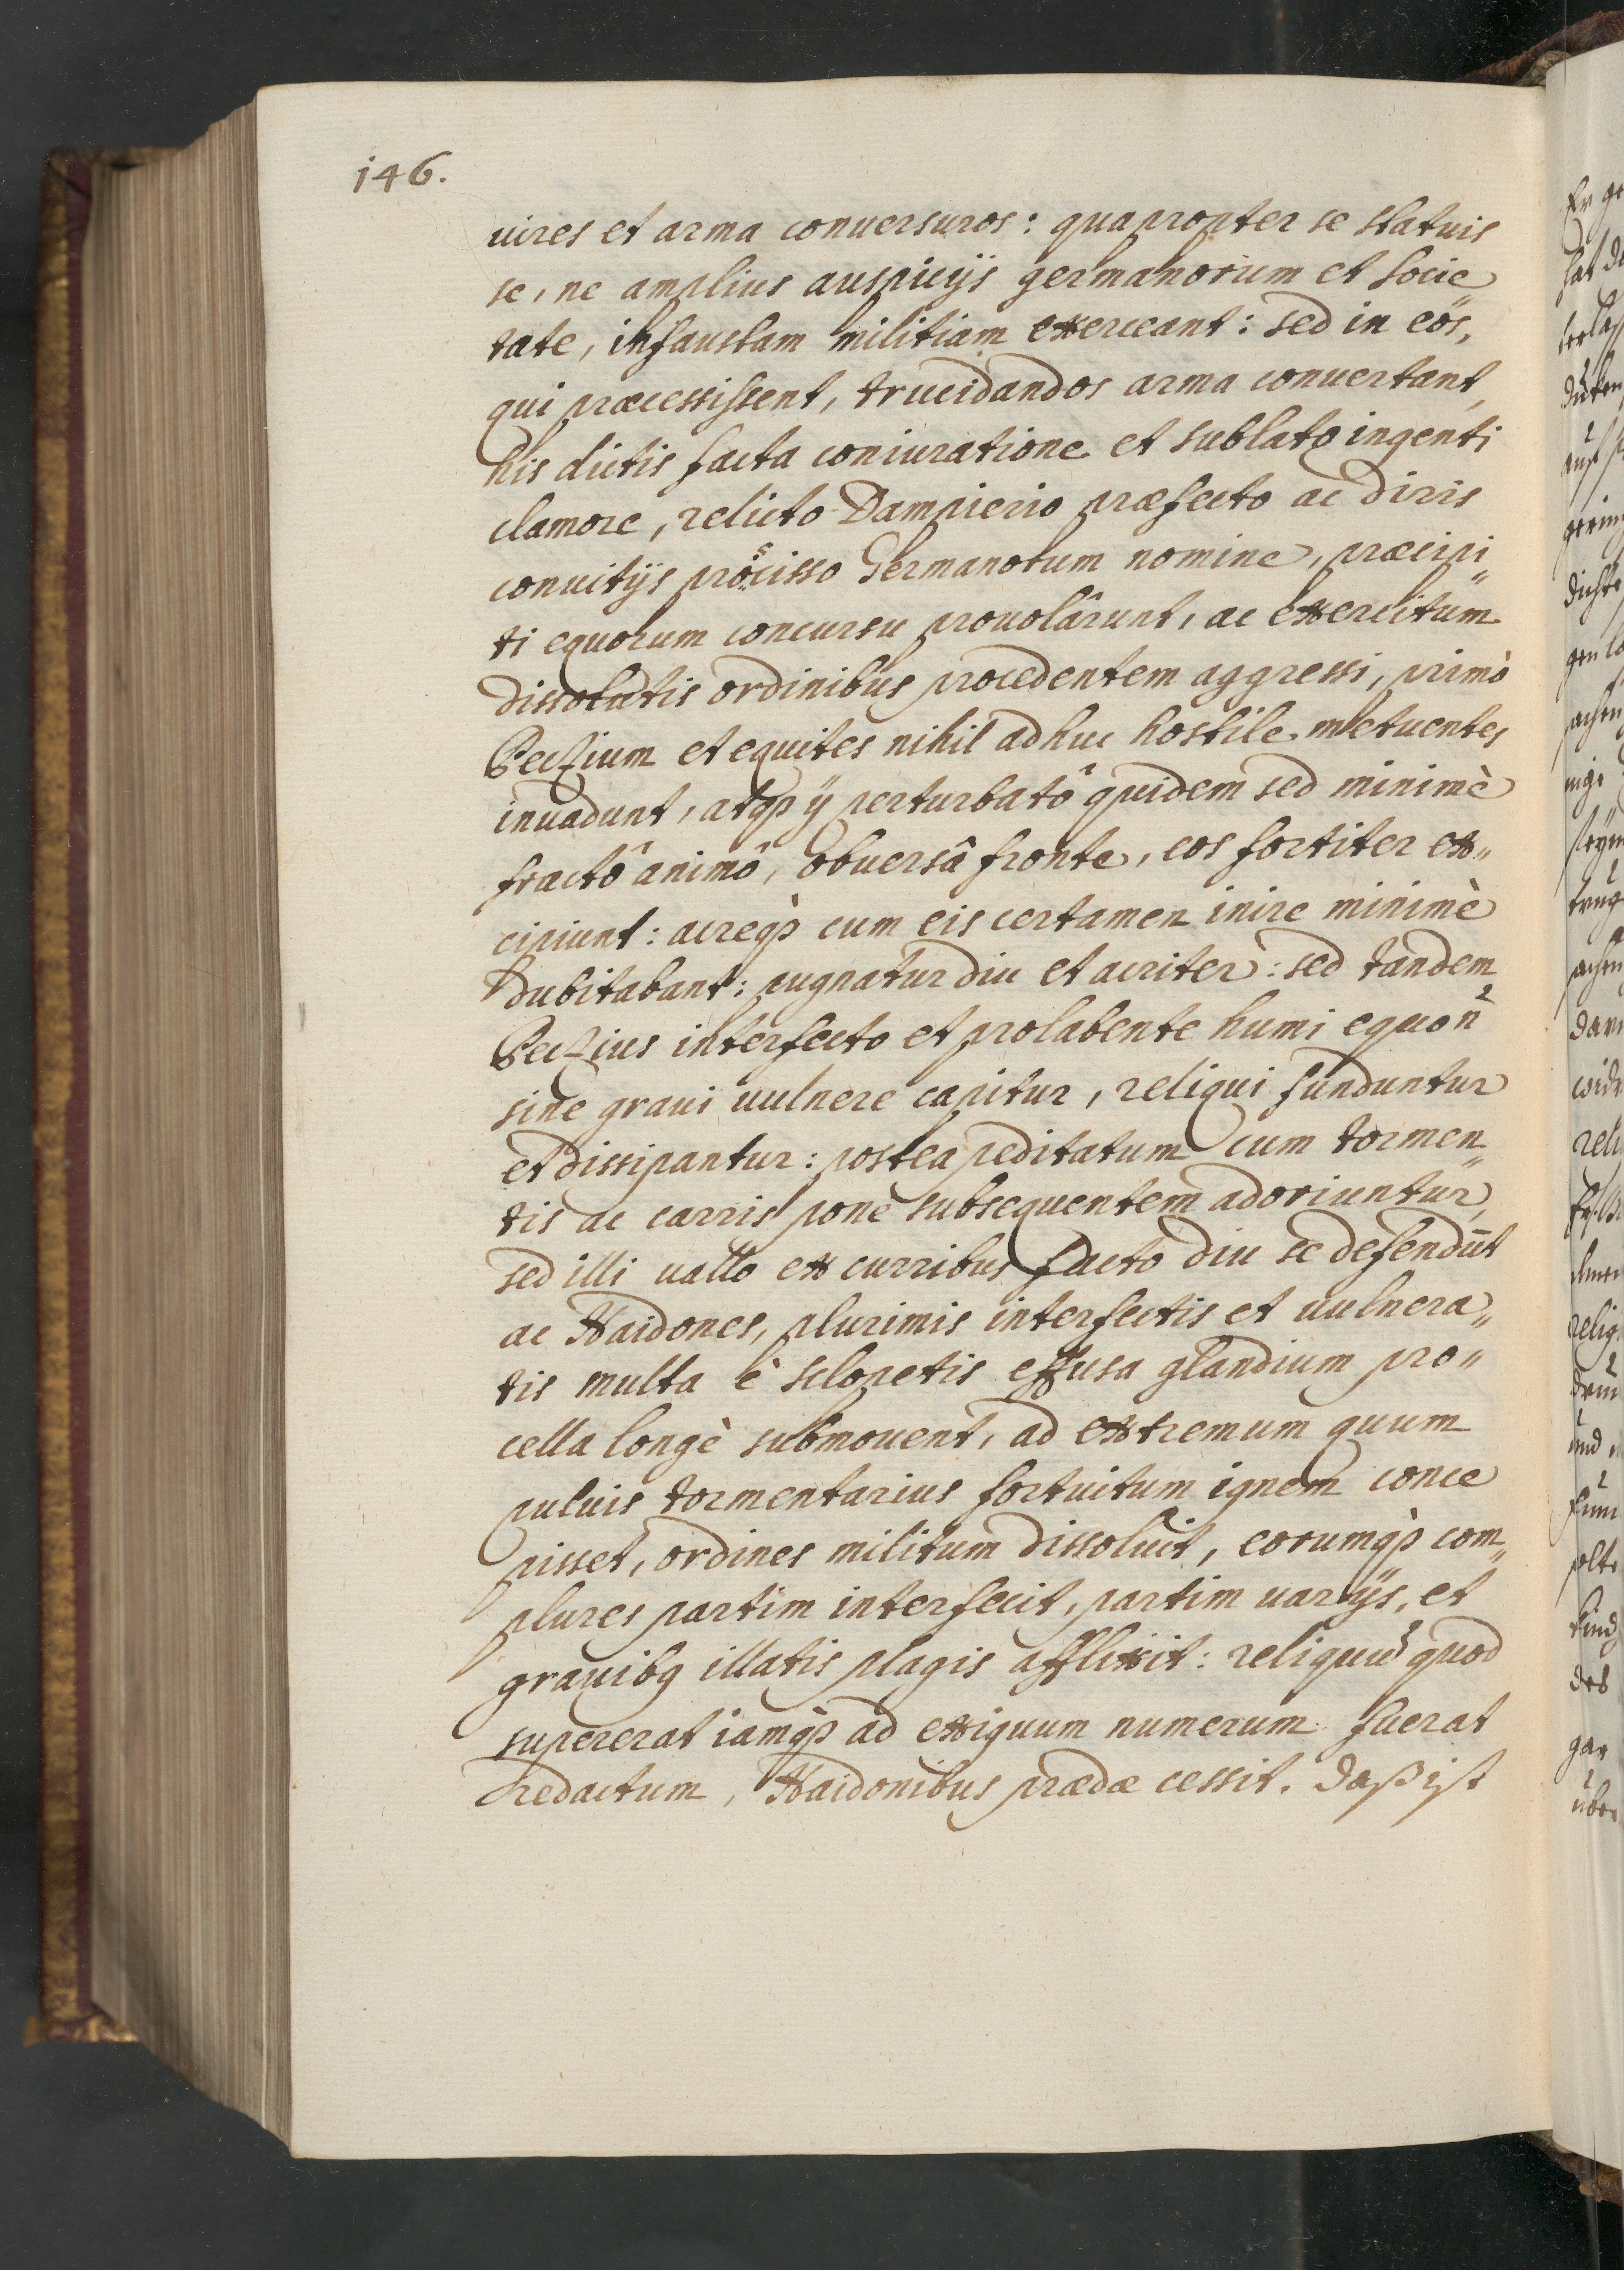 146.
uires et arma conuersuros: quapropter se statuis
se, ne amplius auspicijs germanorum et socie
tate, infaustam militiam exerceant: sed in eos,
qui præcessissent, trucidandos arma conuertant,
his dictis facta coniuratione et sublato ingenti
clamore, relicto Dampierio præfecto ac diris
conuitijs proscisso Germanorum nomine, præcipi„
ti equorum concursu prouolârunt, ac exercitum
dissolutis ordinibus procedentem aggressi, primò
Peczium et equites nihil adhuc hostile metuentes
inuadunt, atqꝫ ij perturbatô quidem sed minimè
fractô animô, obuersâ fronte, eos fortiter ex„
cipiunt: acreqꝫ cum eis certamen inire minimè
dubitabant: pugnatur diu et acriter: sed tandem
Peczius interfecto et prolabente humi equo n̄
sine graui uulnere capitur, reliqui funduntur
et dissipantur: postea peditatum cum tormen„
tis ac carris pone subsequentem adoriuntur,
sed illi uallo ex curribus facto diu se defendūt
ac Haidones, plurimis interfectis et uulnera„
tis multa è sclopetis effusa glandium pro„
cella longè submouent, ad extremum quum
puluis tormentarius fortuitum ignem conce
pisset, ordines militum dissoluit, eorumqꝫ com„
plures partim interfecit, partim uarijs, et
grauibꝰ illatis plagis afflixit: reliquū quod
supererat iamqꝫ ad exiguum numerum fuerat
redactum, Haidonibus prædæ cessit. Daß ist